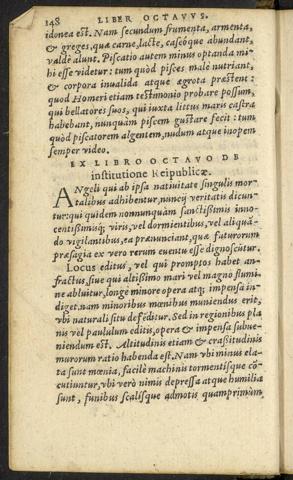 148 LIBER OCTAVVS.
idonea est. Nam secundum frumenta, armenta,
& greges, quæ carne, lacte, caseóque abundant,
valde alunt. Piscatio autem minus optanda mi-
hi esse videtur: tum quòd pisces male nutriant,
& corpora inualida atque ægrota præstent:
quod Homeri etiam testimonio probare possum,
qui bellatores suos, qui iuxta littus maris castra
habebant, nunquàm piscem gustare fecit: tum
quòd piscatorem algentem, nudum atque inopem
semper video.
EX LIBRO OCTAVO DE
institutione Reipublicæ.
ANgeli qui ab ipsa natiuitate singulis mor-
talibus adhibentur, nuncij veritatis dicun-
tur: qui quidem nonnunquàm sanctissimis inno-
centissimisq; viris, vel dormientibus, vel aliquã-
do vigilantibus, ea prænunciant, quæ futurorum
præsagia ex vero rerum euentu esse dignoscitur.
Locus editus, vel qui promptos habet an-
fractus, siue qui altissimo mari vel magno flumi-
ne abluitur, longè minore opera atq; impensa in-
diget. nam minoribus mœnibus muniendus erit,
vbi naturali situ defẽditur. Sed in regionibus pla
nis vel paululum editis, opera & impensa subue-
niendum est. Altitudinis etiam & crassitudinis
murorum ratio habenda est. Nam vbi minus ela-
ta sunt mœnia, facilè machinis tormentisque cõ-
cutiuntur, vbi verò nimis depressa atque humilia
sunt, funibus scalisque admotis quamprimùm